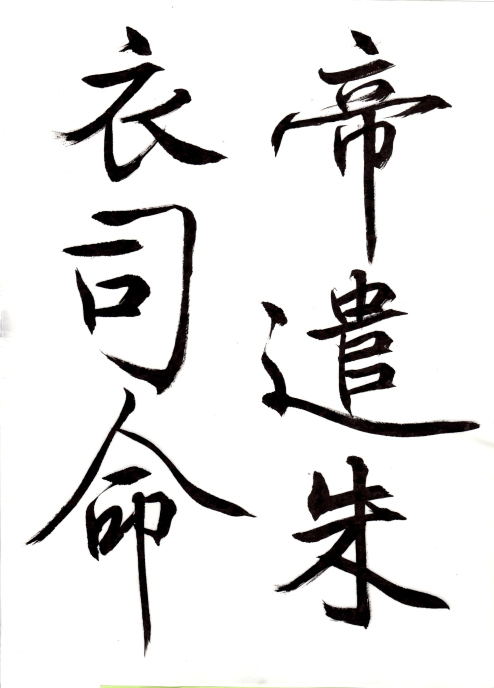 帝遣朱
衣司命